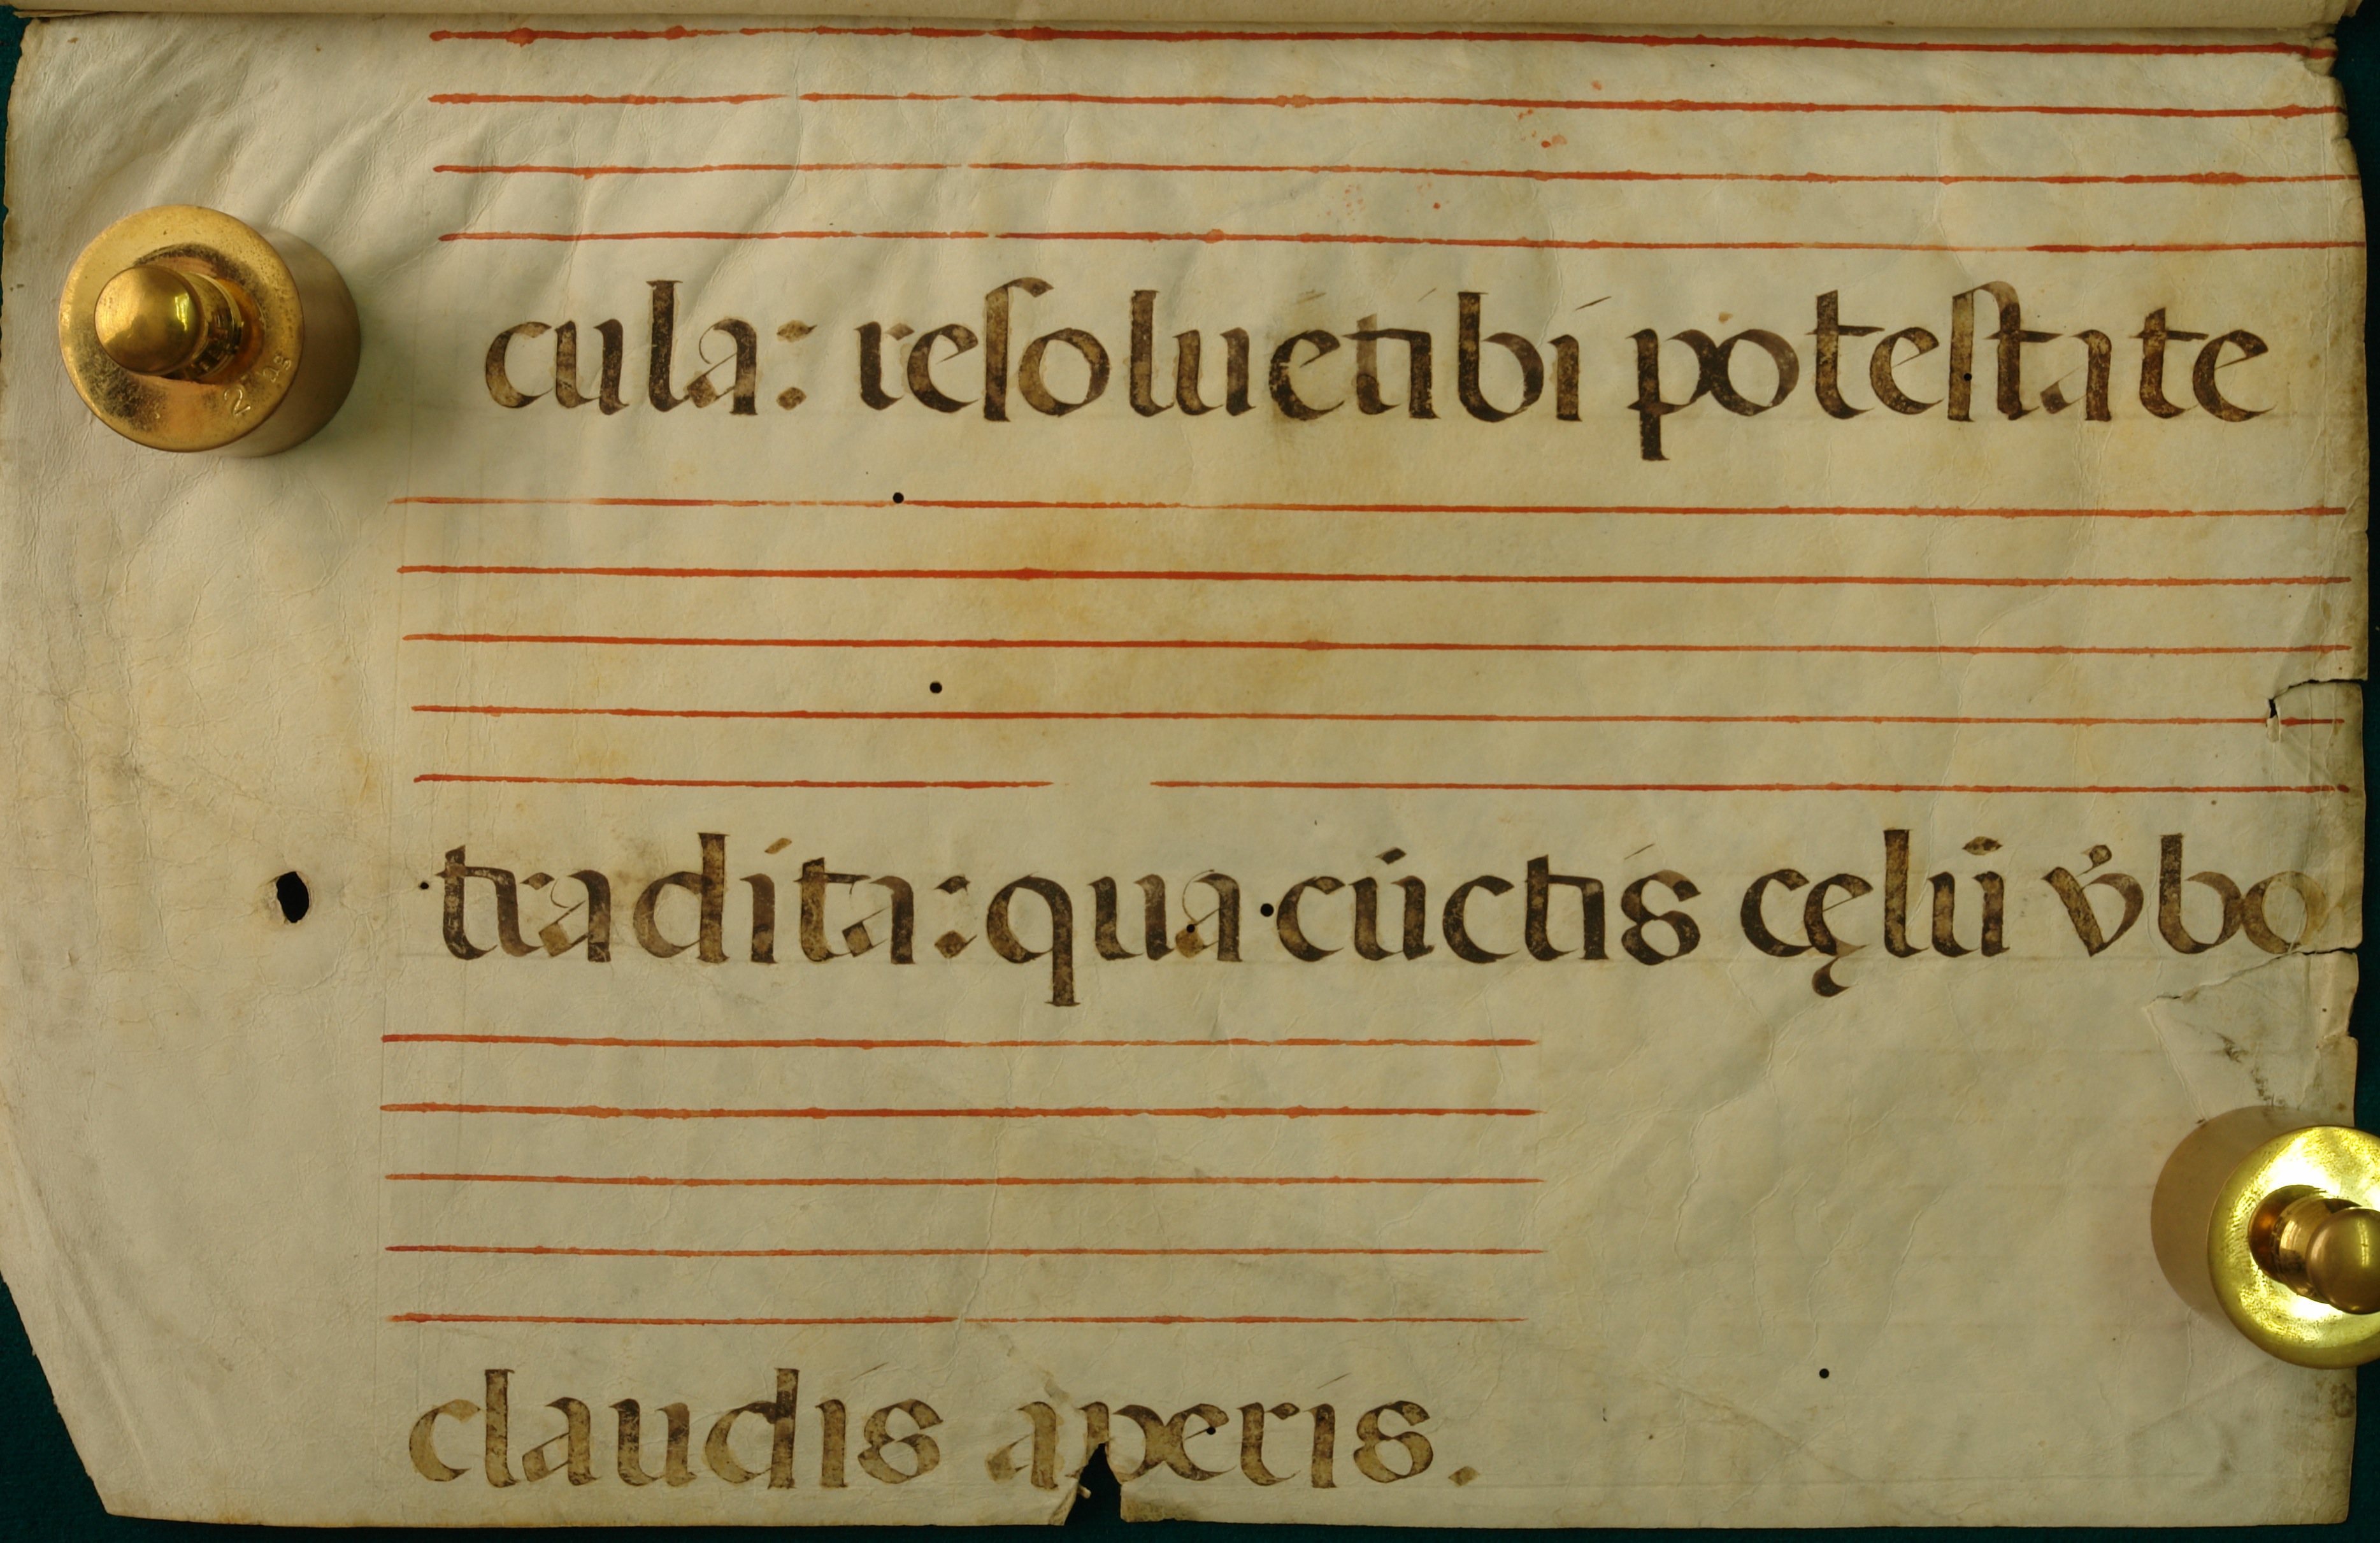 cula: reſoluetibi poteſtate
tradita: qua cūctis cęlū v̉bo
claudis aperis.